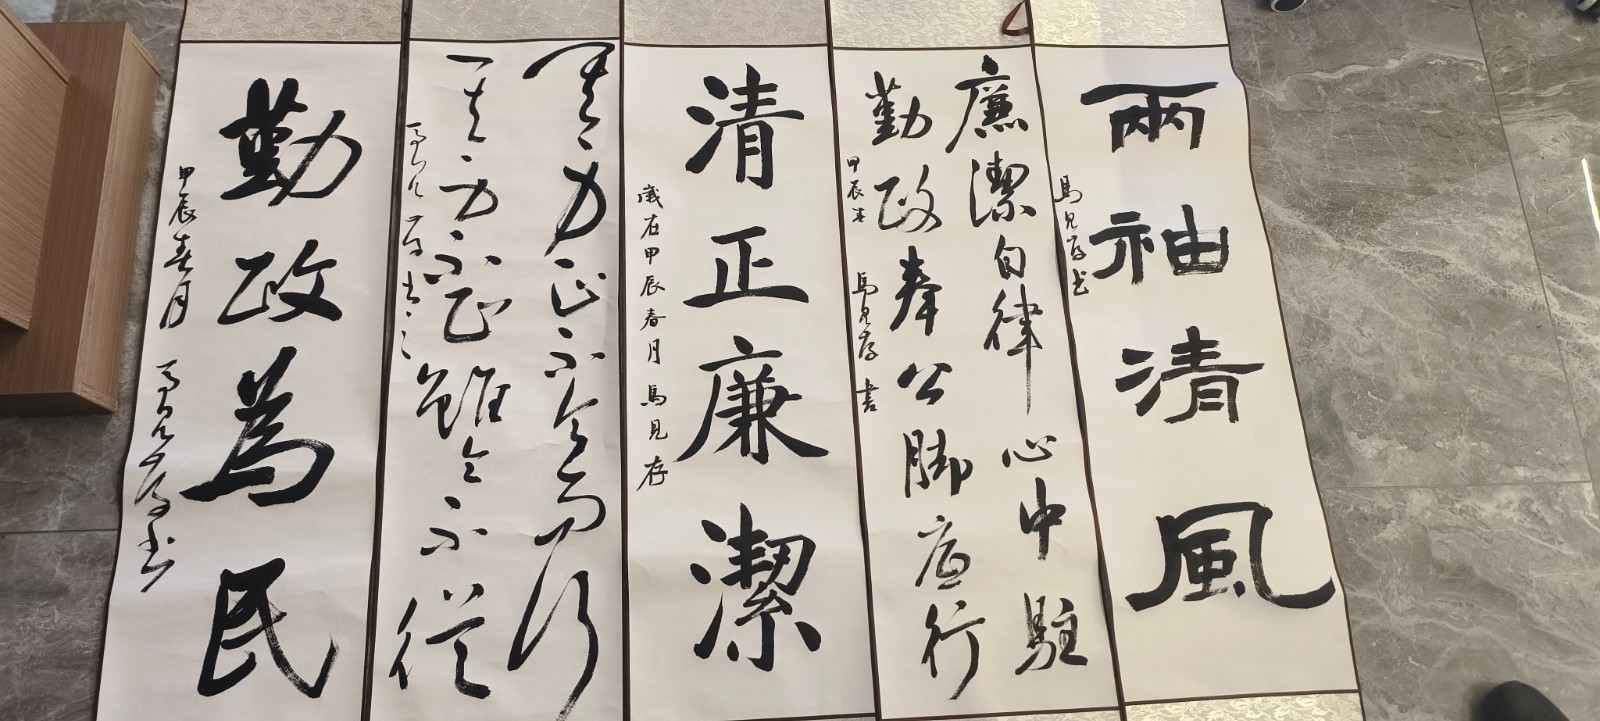 兩袖清風
馬見存书
廉潔自律心中駐
勤政奉公脚底行
甲辰春 馬見存書
清正廉潔
歲在甲辰春月馬見存
其身正不令而行
其身不正雖令不從
馬見存书之
勤政為民
甲辰春月 馬見存书